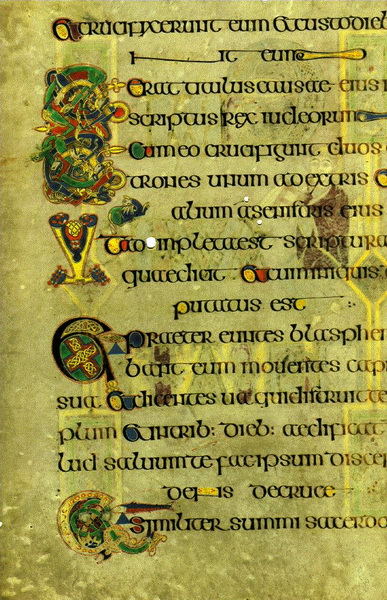 & crucifixerunt eum & custodieb
eum
Erat titulus causae eius
scriptus rex iudeorum
Cum eo crucifigunt duos
trones unum adextris &
alium eius
Ut adimpleta est scriptura
quae dicit & cum iniquis
putatus est
& praeter euntes blasphe
bant eum mouentes capi
sua & dicentes ua qui
plum & in trib: dieb: aedificat
saluum te fac ipsum discen
de cruce
Similiter summi sacerdo